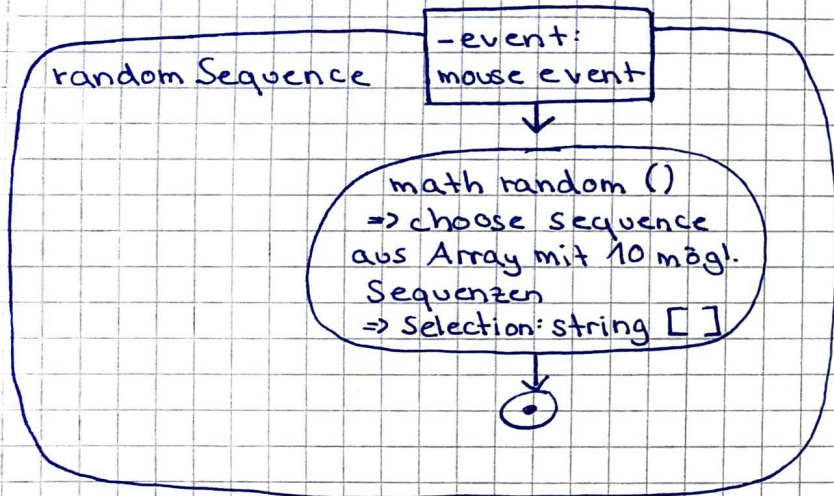 random Sequence
-event:
mouse event
math random ()
=> choose sequence
aus Array mit 10 mögl.
Sequenzen
=> Selection: string [ ]